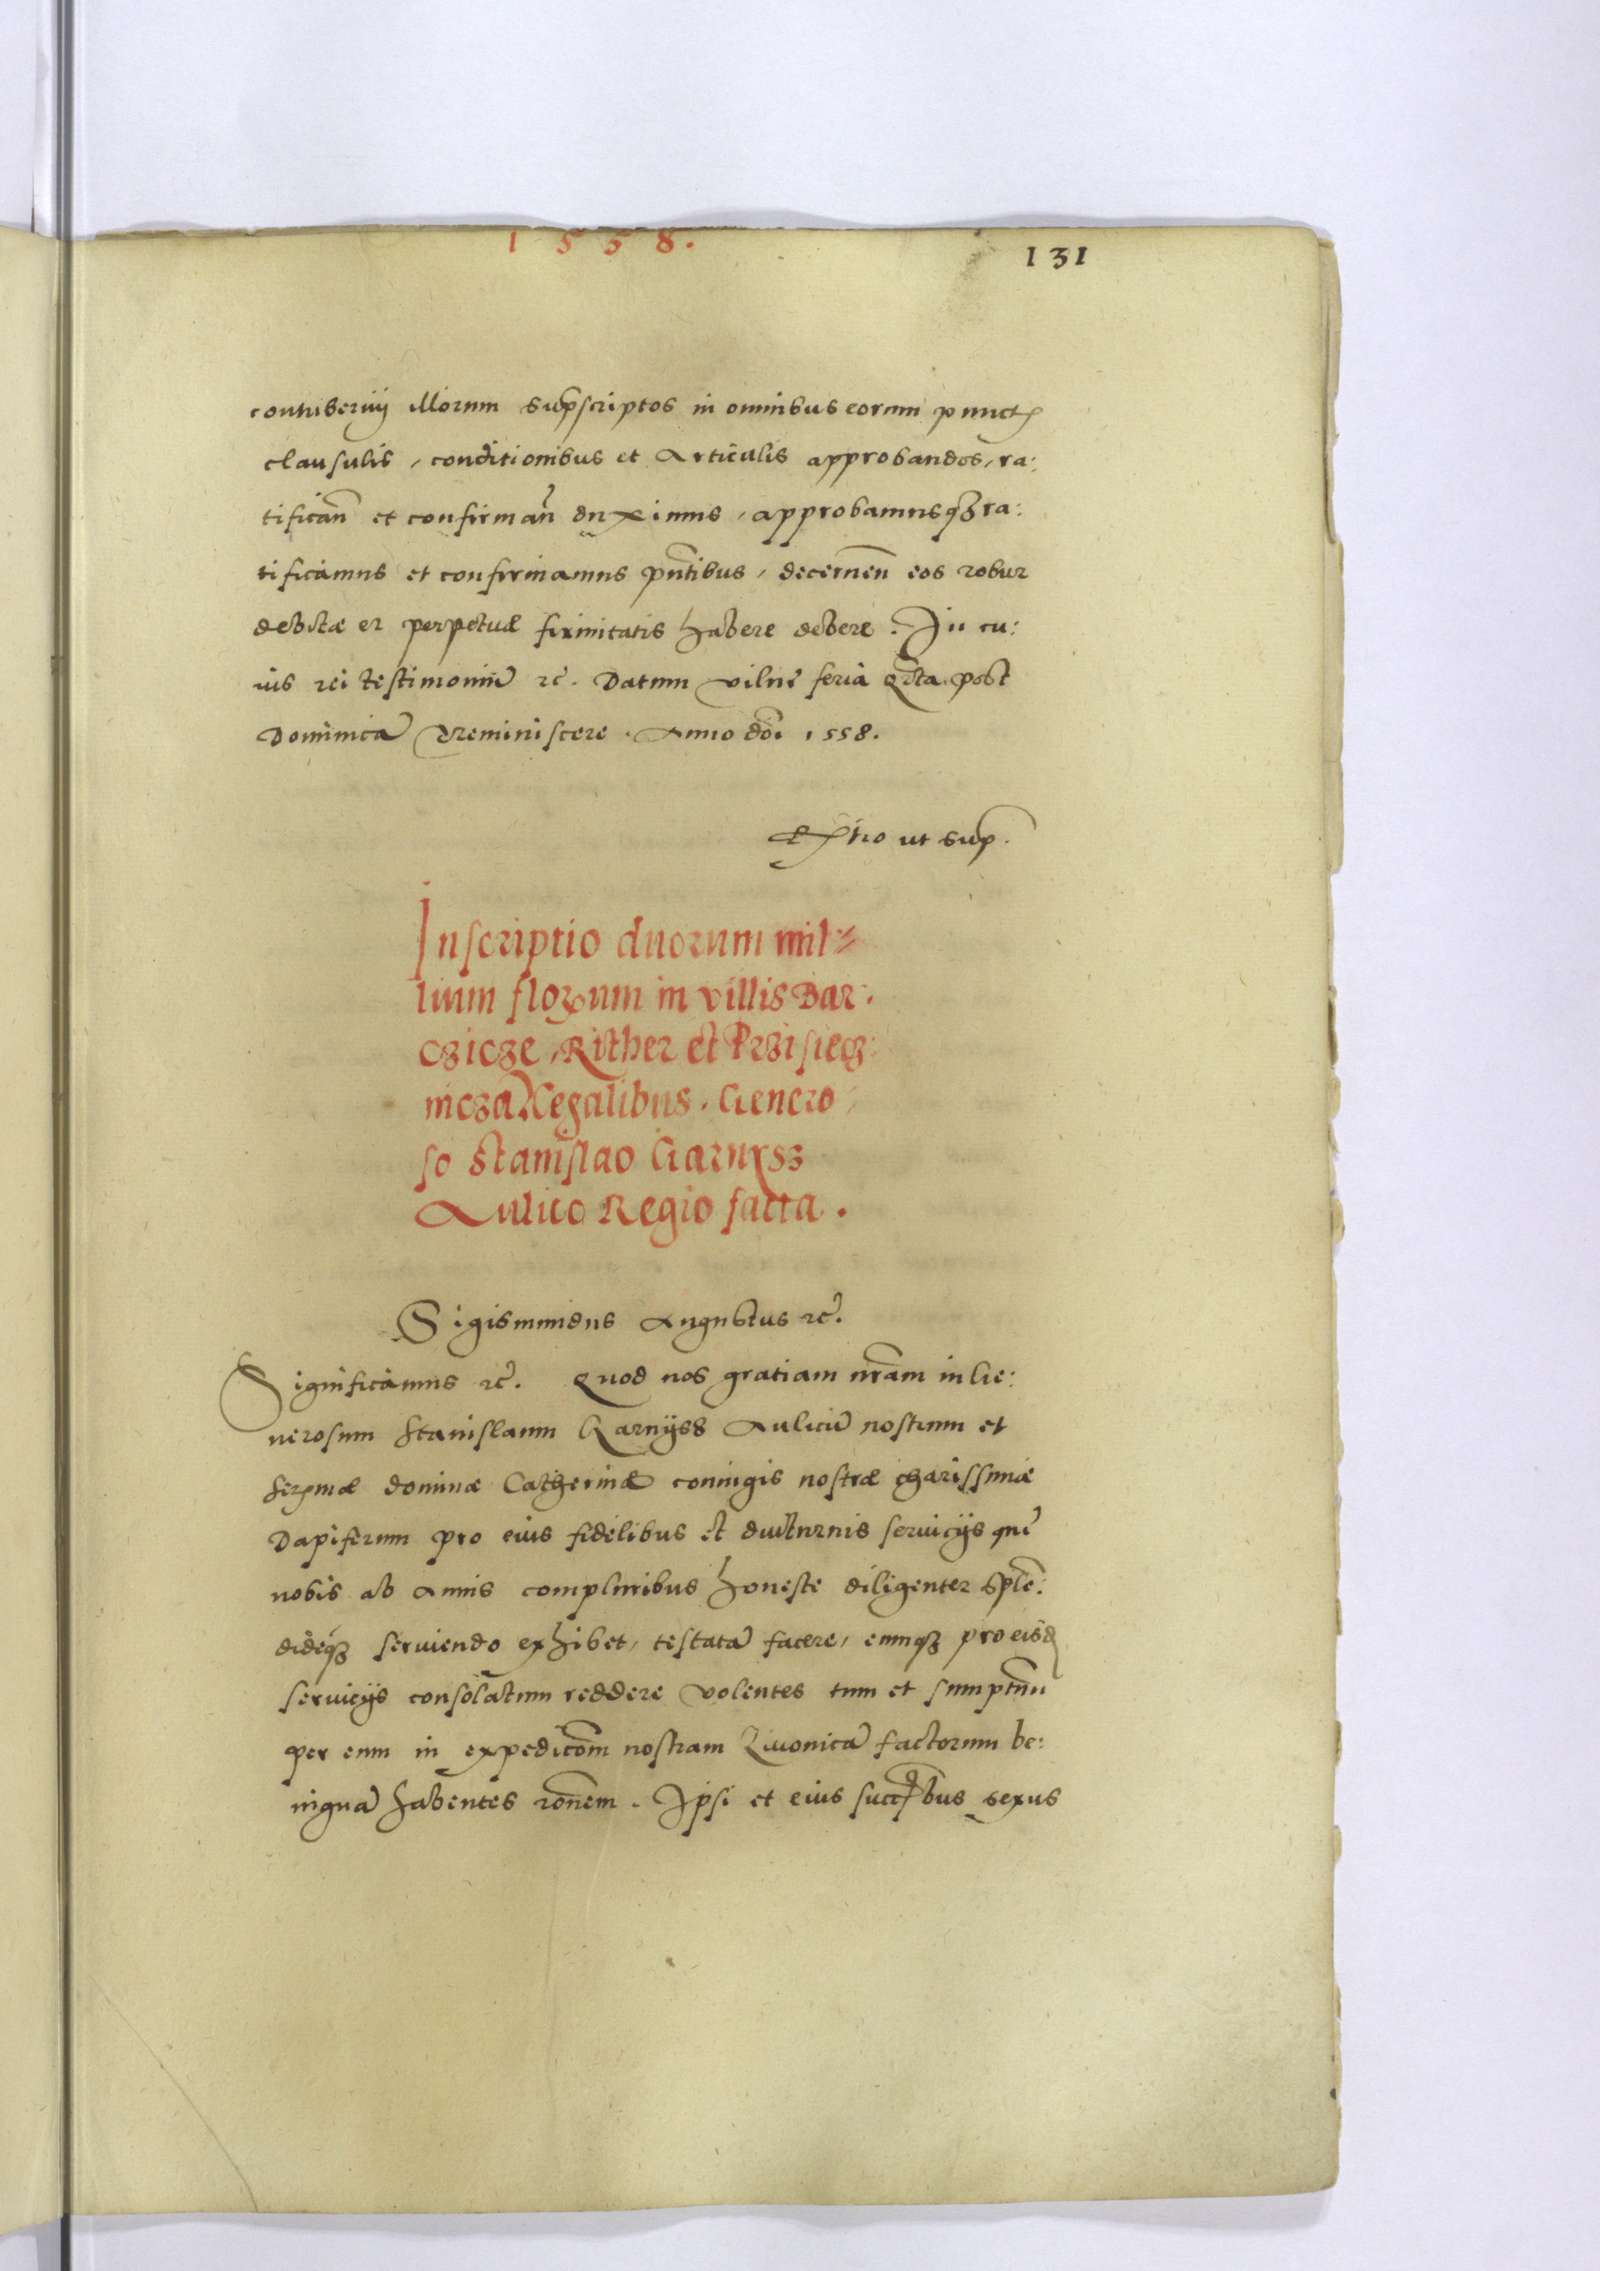 1558.
131
contubernij illorum sup̄scriptos in omnibus eorum punctꝭ
clausulis, conditionibus et Articulis approbandos, ra:
tifican̄ et confirman̄ duximus, approbamusqꝫ ra:
tificamus et confirmamus pn̄tibus, decernen̄ eos robur
debitæ et perpetuæ firmitatis habere debere. In cu:
ius rei testimoniū ꝛc̄. Datum Vilnæ feria Qr̄ta post
Dominicā Reminiscere. Anno dn̄i 1558.
Rl̄tio ut sup̄.
Inscriptio duorum mil=
lium florenum in villis Bar:
czicze, Rither et Przisiecz:
nicza Regalibus. Genero,
so Stanislao Garnyss
Aulico Regio facta.
Sigismundus Augustus ꝛc̄.
Significamus ꝛc̄. Quod nos gratiam nr̄am in Ge:
nerosum Stanislaum Garnyss Aulicū nostrum et
Serꝫmæ dominæ Catherinæ coniugis nostræ charissimæ
Dapiferum pro eius fidelibus et diuturnis seruicijs quę
nobis ab Annis compluribus honeste diligenter Splē:
dideqꝫ seruiendo exhibet, testatā facere, eumqꝫ pro eisdꝫ
seruicijs consolatum reddere volentes tum et sumptuū
per eum in expedicōm nostram Liuonicā factorum be:
nignā habentes rōnem. Ipsi et eius succꝭbus sexus